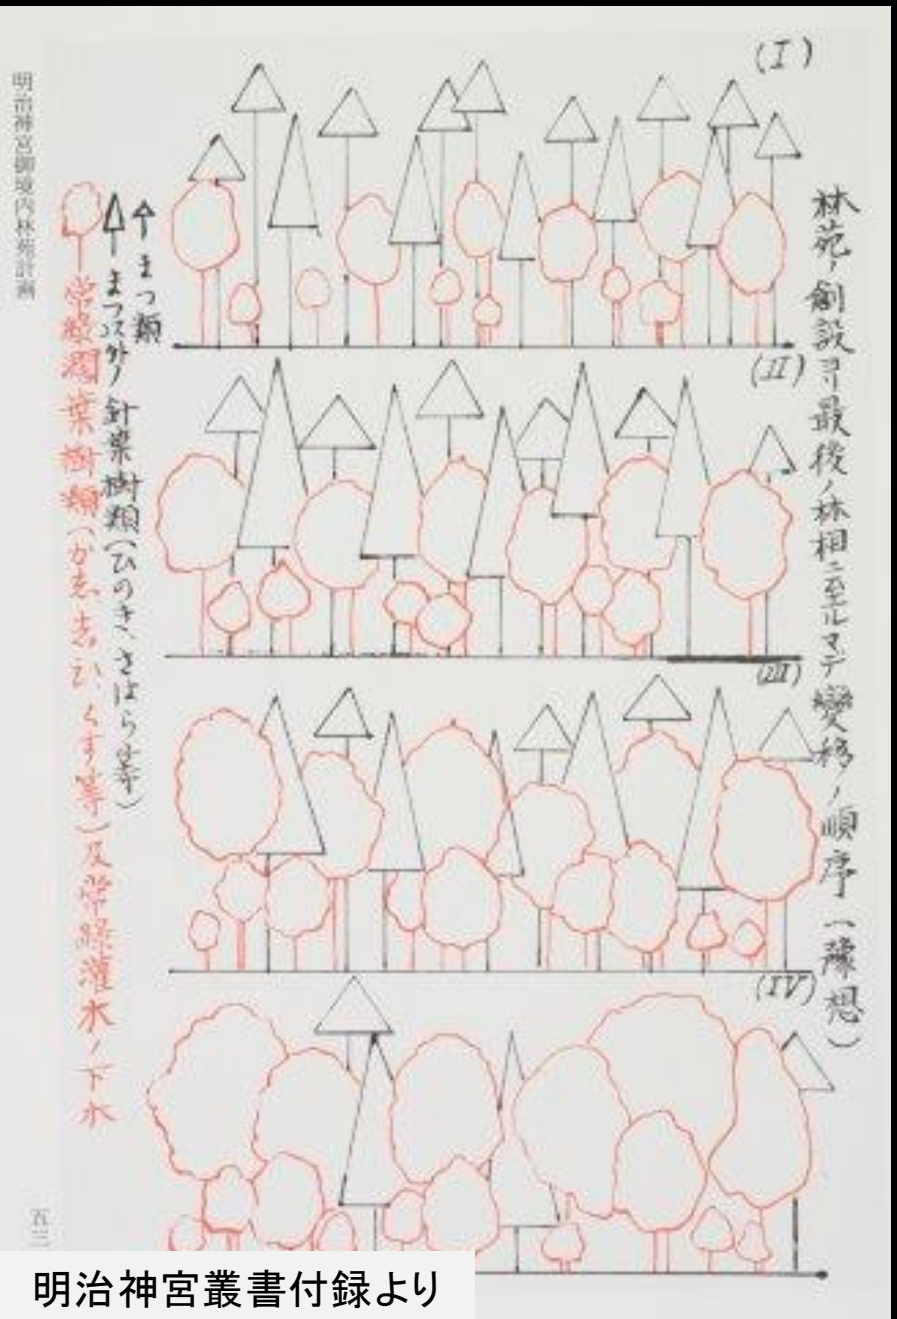 (I)
林苑ノ創設ヨリ最後ノ林相ニ至ルマデ變移ノ順序(豫想)
(II)
(III)
(IV)
まつ類
まつ以外ノ針葉樹類(ひのき、さはら等)
常緑濶葉樹類(かし、しひ、くす等)及常緑灌木ノ下木
明治神宮御境内林苑計画
五三
明治神宮叢書付録より